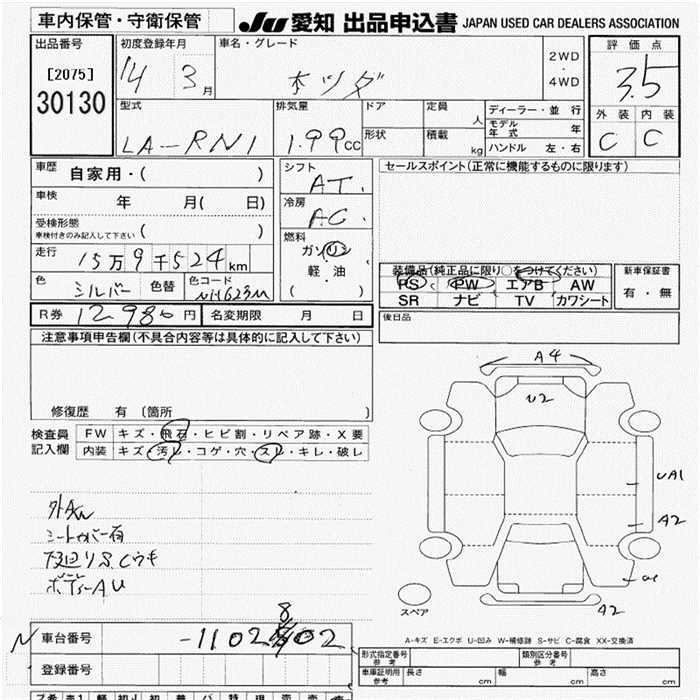 車内保管・守衛保管 JU 愛知 出品申込書 JAPAN USED CAR DEALERS ASSOCIATION
出品番号 初度登録年月 車名・グレード 2WD ・ 4WD 評価点
[2075] 14 3月 ホツダ 3.5
30130
型式 排気量 ドア 定員 人 ディーラー・並行 外装 内装
LA-RN1 1.99cc 形状 積載 kg モデル年式 年 C C
ハンドル 左・右
車歴 自家用・( ) シフト AT. セールスポイント(正常に機能するものに限ります)
車検 年 月( 日) 冷房 AC.
受検形態 車検付きのみ記入して下さい ( ) 燃料 ガソリン
走行 15万9千524km 軽油
色 シルバー 色替 色コード NH623M ( )
装備品(純正品に限り○をつけてください) 新車保証書
PS PW エアB AW 有・無
SR ナビ TV カワシート
R券 12980円 名変期限 月 日 後日品
注意事項申告欄(不具合内容等は具体的に記入して下さい)
修復歴 有 〔箇所 〕
検査員 FW キズ・飛石・ヒビ割・リペア跡・X要
記入欄 内装 キズ・汚レ・コゲ・穴・スレ・キレ・破レ
外AW
シートカバー有
下廻りS.Cウキ
ボディーAU
A4
U2
UA1
A2
A2
スペア
A-キズ E-エクボ U-凹み W-補修跡 S-サビ C-腐食 XX-交換済
N 車台番号 -1102802
8
登録番号
形式指定番号 参考 類別区分番号 参考
車庫証明用 参考 長さ cm 幅 cm 高さ cm